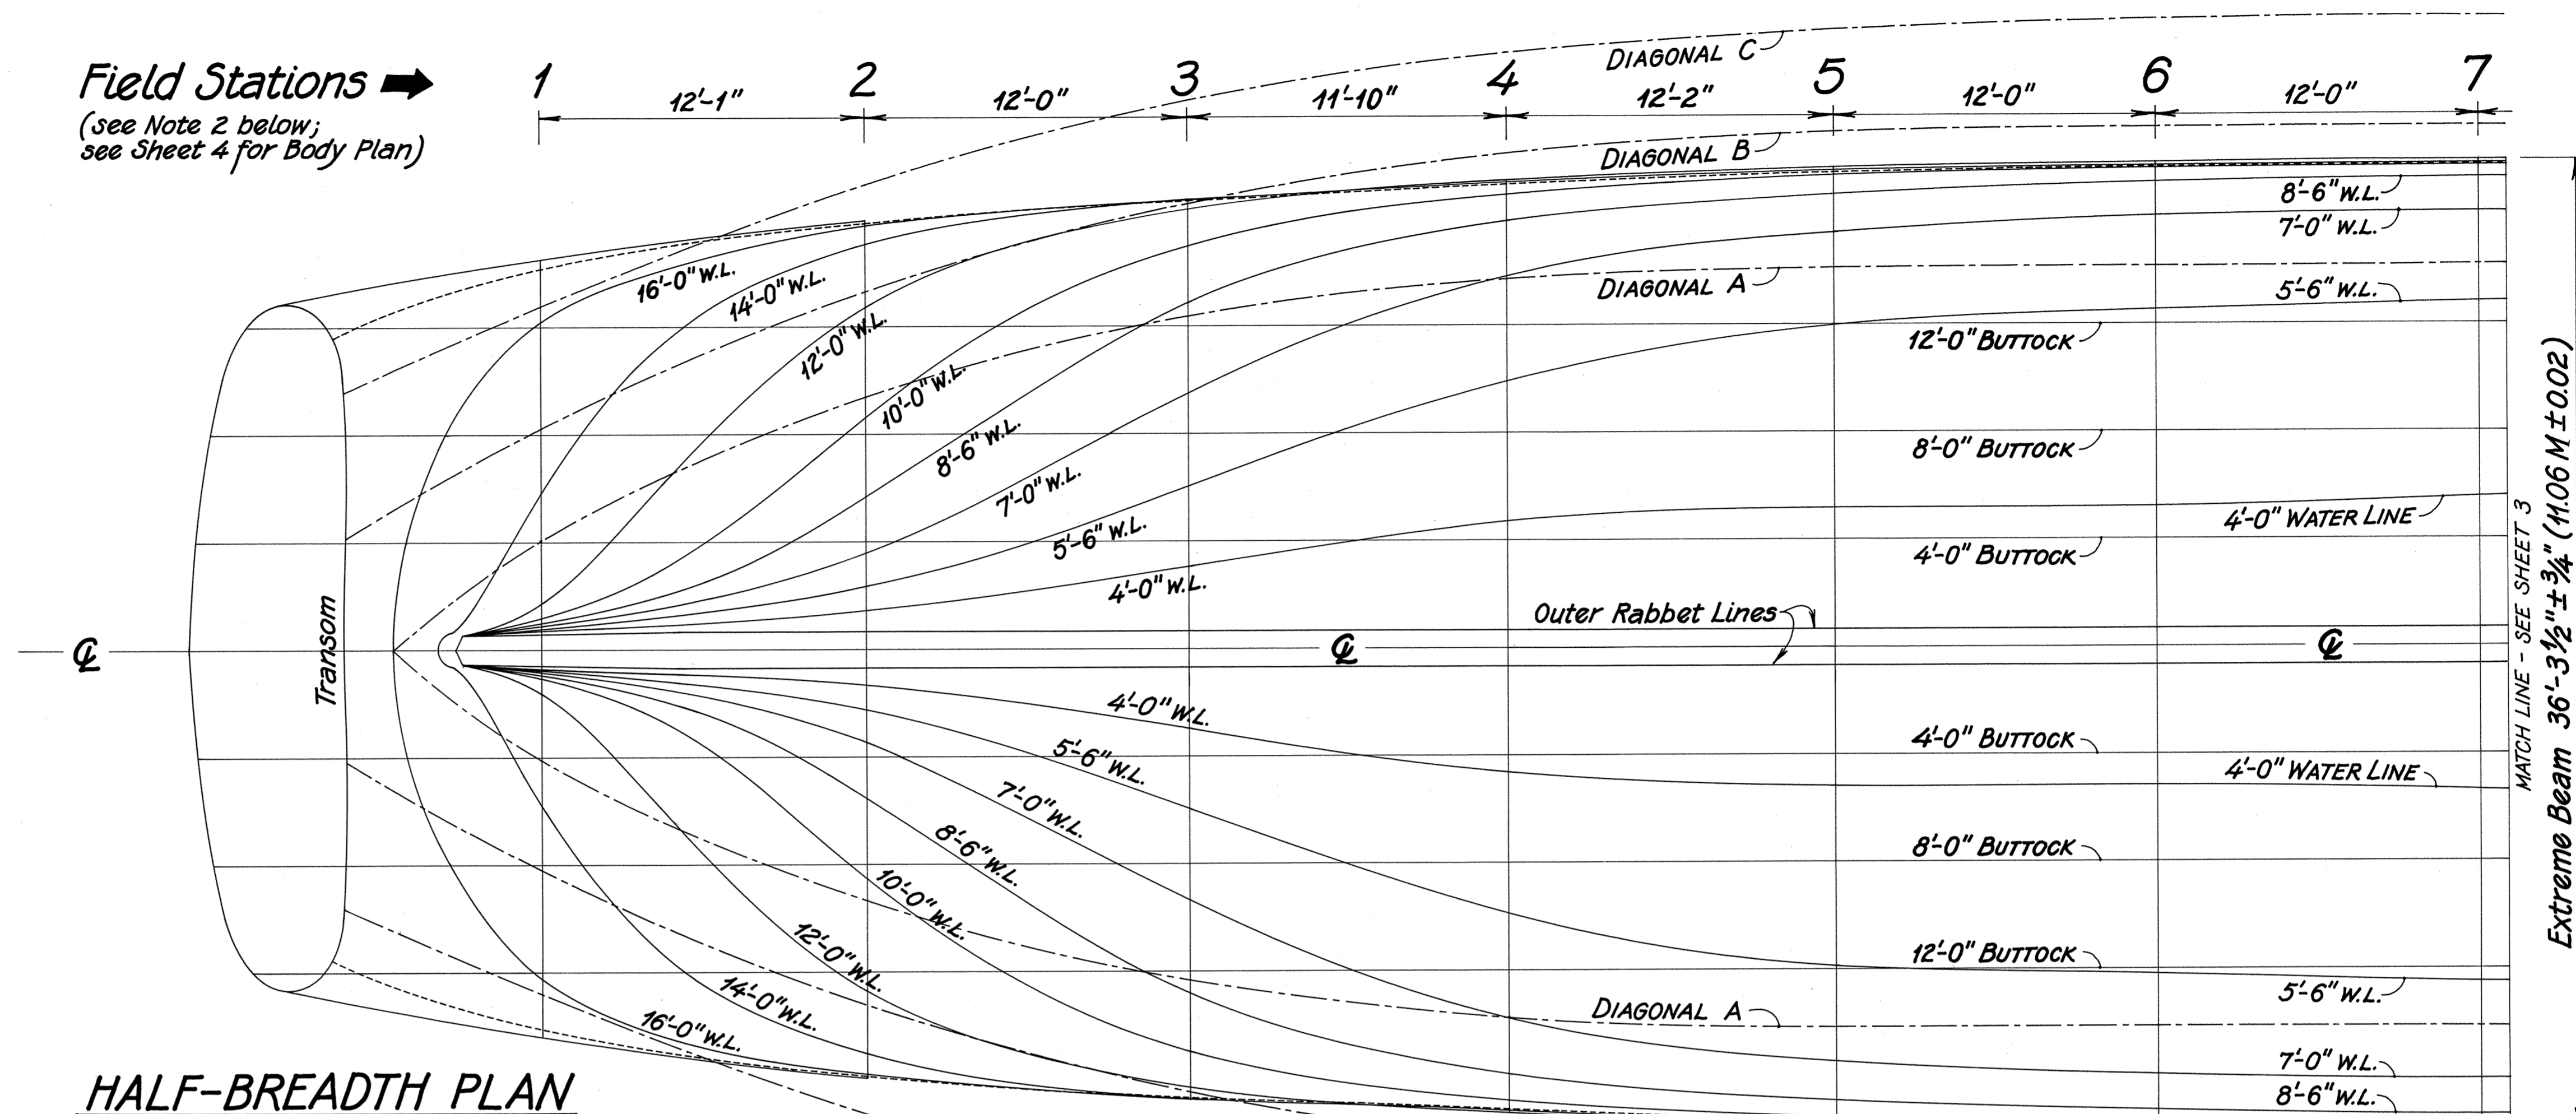 Field Stations
(see Note 2 below;
see Sheet 4 for Body Plan)
1 2 3 4 5 6 7
12'-1" 12'-0" 11'-10" 12'-2" 12'-0" 12'-0"
DIAGONAL C
DIAGONAL B
8'-6" W.L.
7'-0" W.L.
DIAGONAL A
5'-6" W.L.
12'-0" BUTTOCK
8'-0" BUTTOCK
4'-0" WATER LINE
4'-0" BUTTOCK
16'-0" W.L.
14'-0" W.L.
12'-0" W.L.
10'-0" W.L.
8'-6" W.L.
7'-0" W.L.
5'-6" W.L.
4'-0" W.L.
Outer Rabbet Lines
Transom
℄ ℄ ℄
4'-0" W.L.
5'-6" W.L.
7'-0" W.L.
8'-6" W.L.
10'-0" W.L.
12'-0" W.L.
14'-0" W.L.
16'-0" W.L.
4'-0" BUTTOCK
4'-0" WATER LINE
8'-0" BUTTOCK
12'-0" BUTTOCK
5'-6" W.L.
DIAGONAL A
7'-0" W.L.
8'-6" W.L.
MATCH LINE - SEE SHEET 3
Extreme Beam 36'-3½" ± ¾" (11.06 M ± 0.02)
HALF-BREADTH PLAN